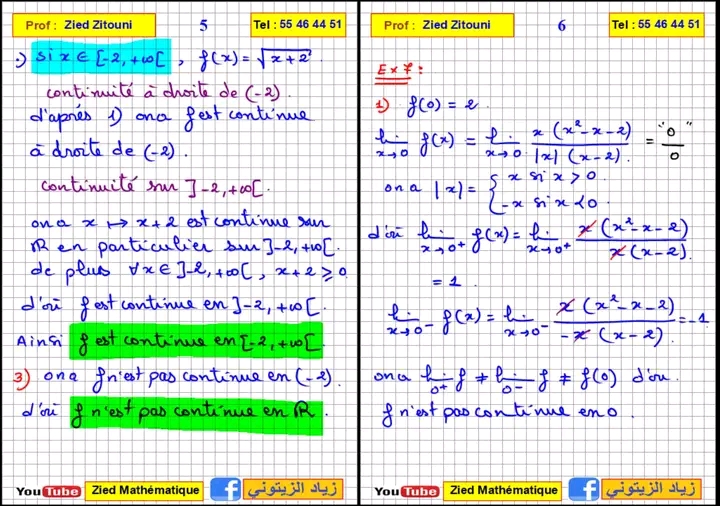 Prof : Zied Zitouni 5 Tel : 55 46 44 51
:) si x ∈ [-2, +∞[ , f(x) = √(x+2) .
continuité à droite de (-2) .
d'aprés 1) on a f est continue
à droite de (-2) .
continuité sur ]-2, +∞[ .
on a x ↦ x+2 est continue sur
ℝ en particulier sur ]-2, +∞[ .
de plus ∀x ∈ ]-2, +∞[ , x+2 ≥ 0
d'où f est continue en ]-2, +∞[ .
Ainsi f est continue en [-2, +∞[
3) on a f n'est pas continue en (-2) .
d'où f n'est pas continue en ℝ .
YouTube Zied Mathématique f زياد الزيتوني
Prof : Zied Zitouni 6 Tel : 55 46 44 51
Ex 7 :
1) f(0) = 2 .
lim x→0 f(x) = lim x→0 x (x²-x-2) / |x| (x-2) . = "0/0"
on a |x| = { x si x > 0 .
-x si x < 0 .
d'où lim x→0⁺ f(x) = lim x→0⁺ x (x²-x-2) / x (x-2) .
= 1 .
lim x→0⁻ f(x) = lim x→0⁻ x (x²-x-2) / -x (x-2) . = -1
on a lim 0⁺ f ≠ lim 0⁻ f ≠ f(0) d'où .
f n'est pas continue en 0 .
YouTube Zied Mathématique f زياد الزيتوني